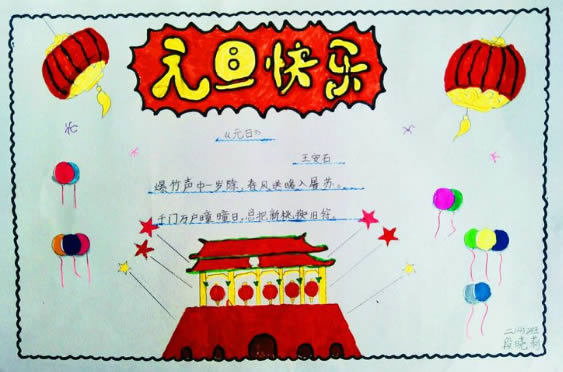 元旦快乐
《元日》
王安石
爆竹声中一岁除，春风送暖入屠苏。
千门万户曈曈日，总把新桃换旧符。
段晓莉